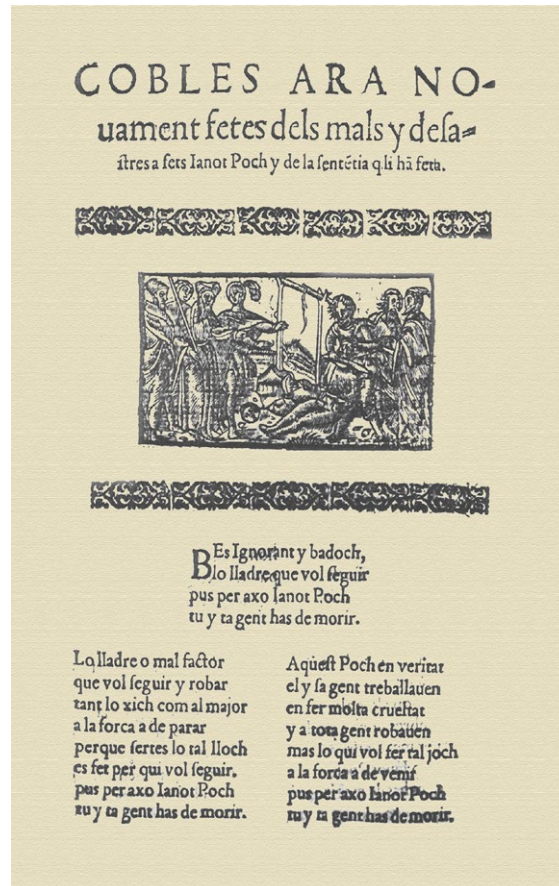 COBLES ARA NO-
uament fetes dels mals y desa-
ſtres a fets Ianot Poch y de la ſentẽtia q̃ li hã feta.
BEs Ignorant y badoch,
lo lladre que vol ſeguir
pus per axo Ianot Poch
tu y ta gent has de morir.
Lo lladre o mal factor
que vol ſeguir y robar
tant lo xich com al major
a la forca a de parar
perque ſertes lo tal lloch
es fet per qui vol ſeguir.
pus per axo Ianot Poch
tu y ta gent has de morir.
Aqueſt Poch en veritat
el y ſa gent treballauen
en fer molta crueltat
y a tota gent robauen
mas lo qui vol fer tal joch
a la forca a de venir
pus per axo Ianot Poch
tu y ta gent has de morir.